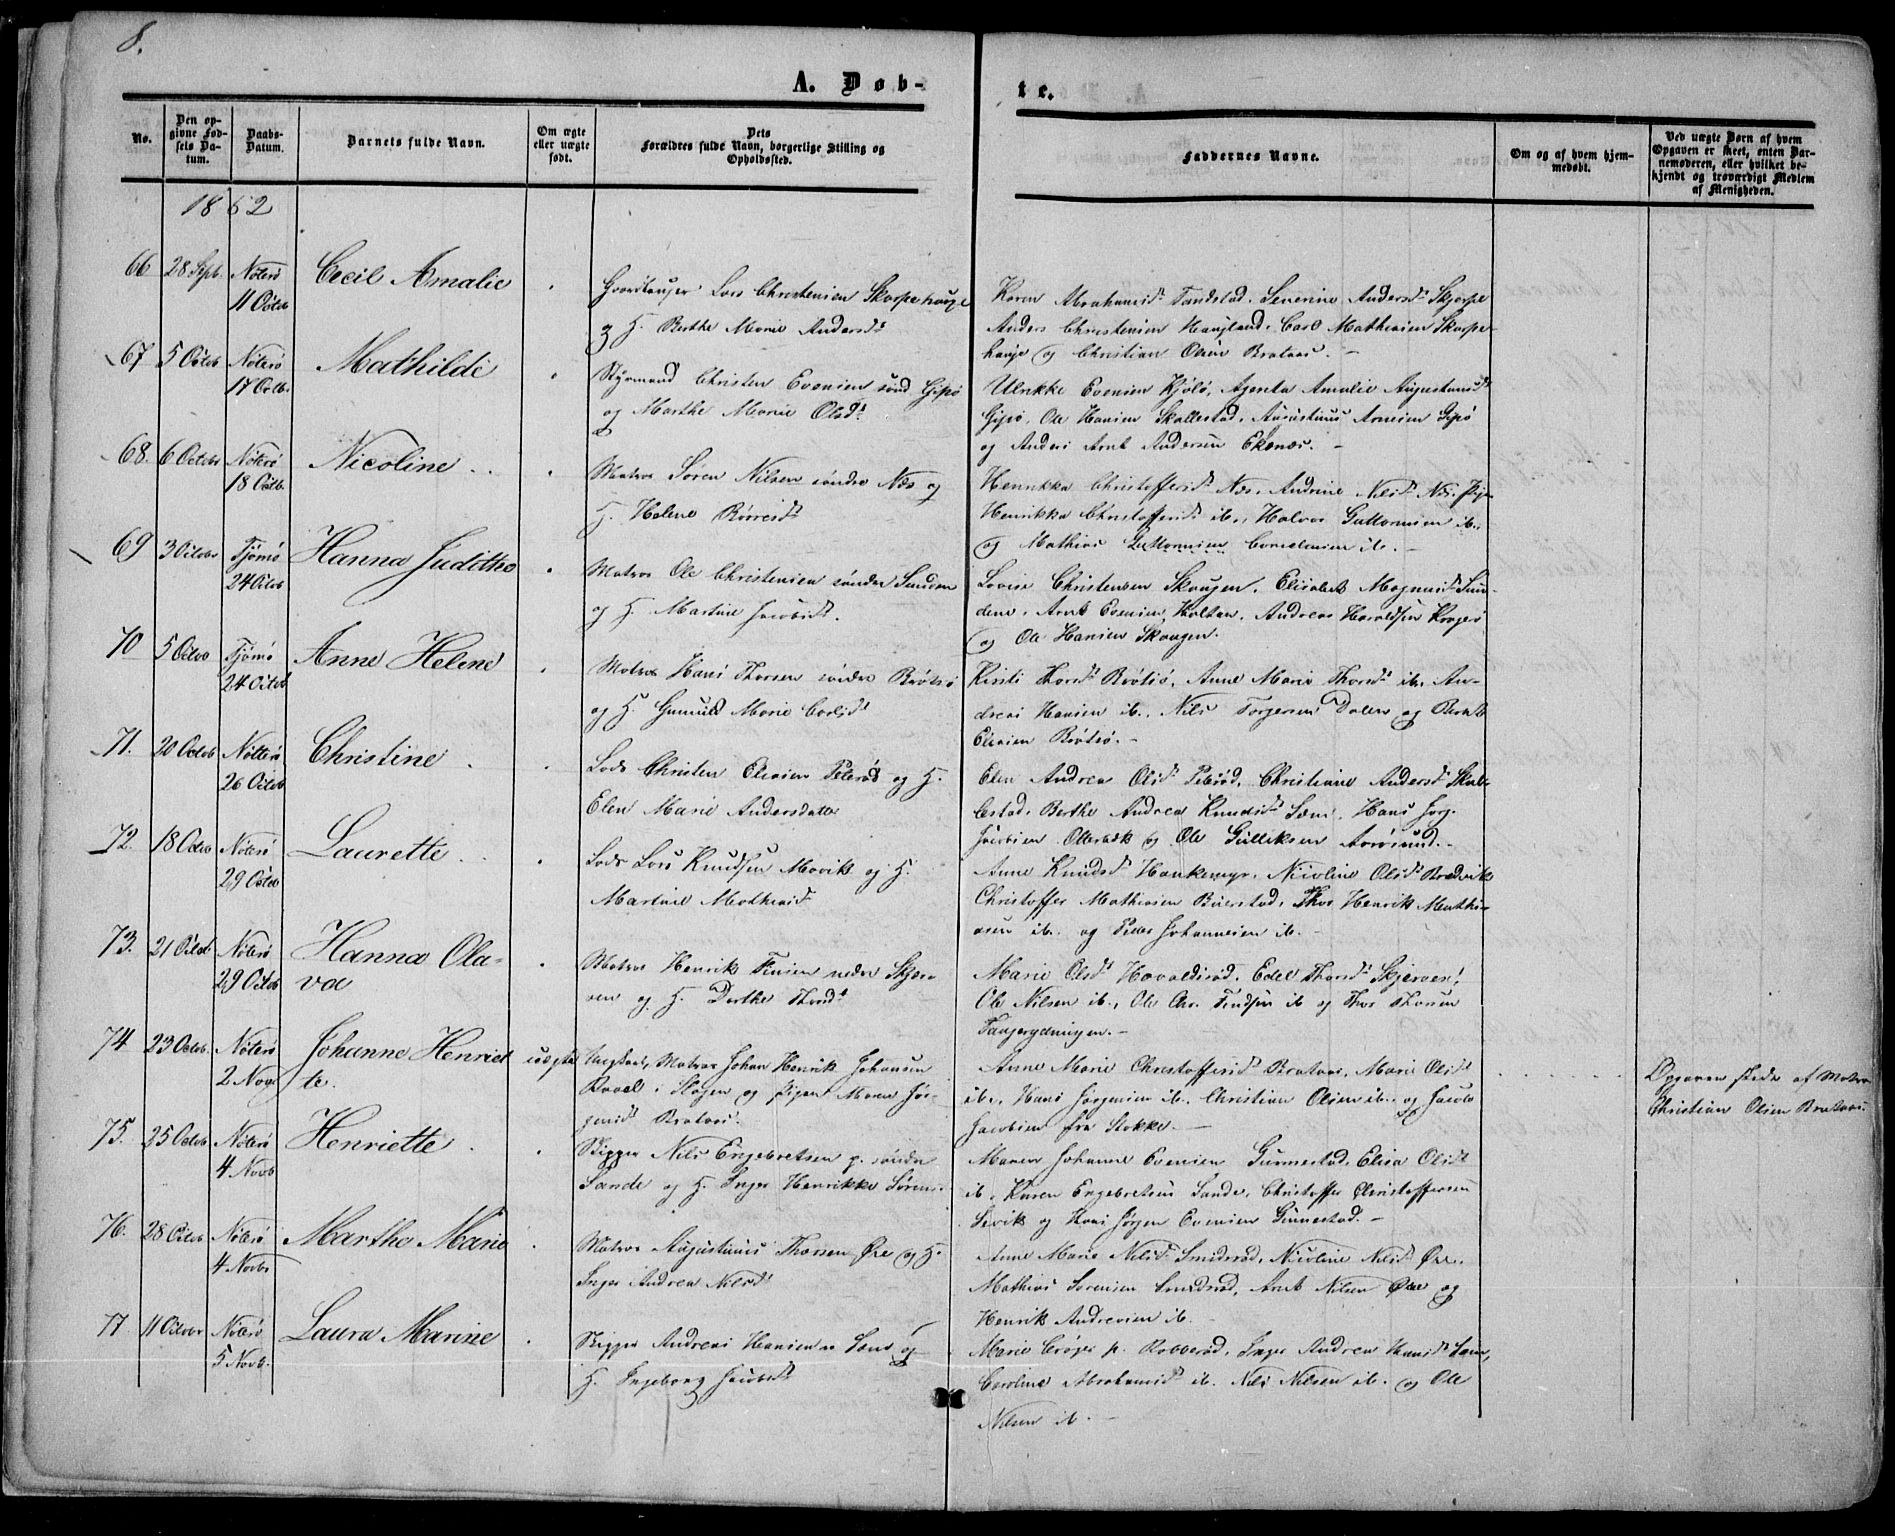 8.
A. Døb-
te.
No.
Den op-
givne Fød-
sels Da-
tum.
Daabs-
Datum.
Barnets fulde Navn.
Om ægte
eller uægte
født.
Dets
Forældres fulde Navn, borgerlige Stilling og
Opholdssted.
Faddernes Navne.
Om og af hvem hjem-
medøbt.
Ved uægte Børn af hvem
Opgaven er skeet, enten Bar-
nemoderen, eller hvilket be-
kjendt og troværdigt Medlem
af Menigheden.
1862
66 28 Sept. Nøterø
11 Octob
Cecil Amalie
Lars Christensen Skarpehauge
og H. Berthe Marie Andersdt
Karen Abrahamsdt Tandstad. Severine Andersdt Skjerpe
Anders Christensen Haugland. Carl Mathisen Skarpe-
hauge og Christian Olsen Brataas. -
67 5 Octob Nøterø
17 Octb.
Mathilde
Styrmand Christen Evensen sønd Gipø
og Marthe Marie Olsdt
Ulrikke Evensen Kjølø, Agenta Amalie Augustinusdt
Gipø, Ole Hansen Skallestad, Augustinus Arnesen Gipø
og Anders Arnt Andersen Ekenæs. -
68. 6 Octobr Nøterø
18 Octb.
Nicoline
Matros Søren Nilsen søndre Næs og
H. Helene Børresdt
Henrikka Christoffersdt Næs. Andrine Nilsdt Næs. Pige
Henrikka Christoffersdt ib., Halvor Guttormsen ib.,
og Mathias Guttormsen ib. -
69 3 Octobr Tjømø
24 Octob
Hanna Judithe
Matros Ole Christensen søndre Sunden
og H. Martine Jacobsdt.
Lovise Christensen Skaugen. Elisabet Magnusdt Sun-
dene. Arnt Evensen Holtan. Andreas Haraldsen Kragerø
og Ole Hansen Skaugen.
70 5 Octob Tjømø
24 Octob
Anne Helene
Matros Hans Thorsen søndre Brøtsø
og H. Gunuld Marie Carlsdt
Kirsti Thorsdt Brøtsø, Anne Marie Thorsdt ib. An-
dreas Hansen ib. Nils Torgersen Dalen og Bernt
Eliasen Brøtsø. -
71. 20 Octob Nøtterø
26 Octob
Christine
Lods Christen Eliasen Peterød og H.
Elen Marie Andersdatter
Elen Andrea Olsdt Peterød, Christiane Andersdt Skal-
lestad, Berthe Andrea Knudsdt Sæm. Hans Jørg.
Jacobsen Ollebæk og Ole Gulliksen Aarøsund. -
72. 18 Octob Nøterø
29 Octob
Laurette
Lods Lars Knudsen Møvik og H.
Martine Mathiasdt
Anne Knudsdt Hankemyr. Nicoline Olsdt Bredvik
Christoffer Mathiasen Buerstad, Thor Henrik Mathi-
asen ib. og Peder Johannesen ib. -
73. 21 Octob Nøterø
29 Octob
Hanna Ola-
va
Matros Henrik Finsen nedre Skjer-
ven og H. Dorthe Thorsdt
Marie Olsdt Havaldsrød. Edel Thorsdt Skjerven,
Ole Nilsen ib., Ole Chr. Findsen ib og Thor Thorsen
74 23 Octob. Nøterø
2 Nov
Johanne Henriet
te.
uægte
Ungkarl, Matros Johan Henrik Johansen
Raael i Slagen og Pigen Maren Jør-
gensdt Brataas.
Anne Marie Christoffersdt Brataas. Marie Olsdt
ib., Hans Jørgensen ib. Christian Olsen ib. og Jacob
Jacobsen fra Stokke. -
Opgaven skede af Matros
Christian Olsen Brataas.
75. 25 Octob Nøterø
4 Novb
Henriette
Skipper Nils Engebretsen p. søndre
Sande og H. Inger Henrikke Sørens.
Maren Johanne Evensen Gunnestad. Elisa Olsdt
ib. Karen Engebretsen Sande, Christoffer Christoffersen
Sevik og Hans Jørgen Evensen Gunnestad. -
76. 28 Octob Nøterø
4 Novbr
Marthe Marie
Matros Augustinus Thorsen Øre og H.
Inger Andrea Nilsdt
Anne Marie Nilsdt Smidsrød. Nicoline Nilsdt Øre.
Mathias Sørensen Smidsrød, Arnt Nilsen Øre og
Henrik Andreasen ib.
77 11 Octobr Nøterø
5 Novb.
Laura Marine
Skipper Andreas Hansen Sæm og
H. Ingeborg Jacobsdt
Marie Crøger p. Robberød. Inger Andrea Hansdt Sæm,
Caroline Abrahamsdt ib. Nils Nilsen ib. og Ole
Nilsen ib. -